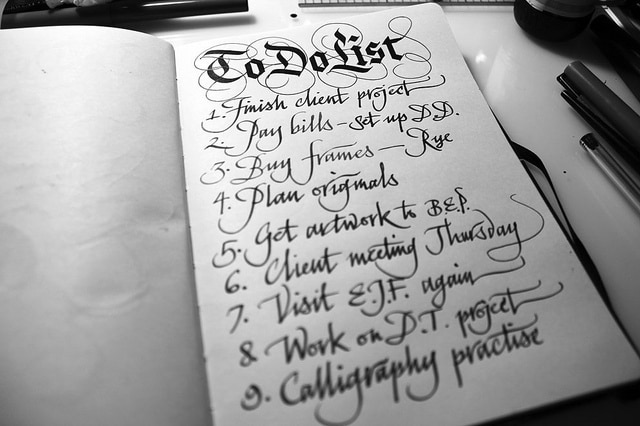 To Do List
1. Finish client project
2. Pay bills - set up D.D.
3. Buy frames - Rye
4. Plan originals
5. Get artwork to B.E.P.
6. Client meeting Thursday
7. Visit E.J.F. again
8 Work on D.T. project
9. Calligraphy practise